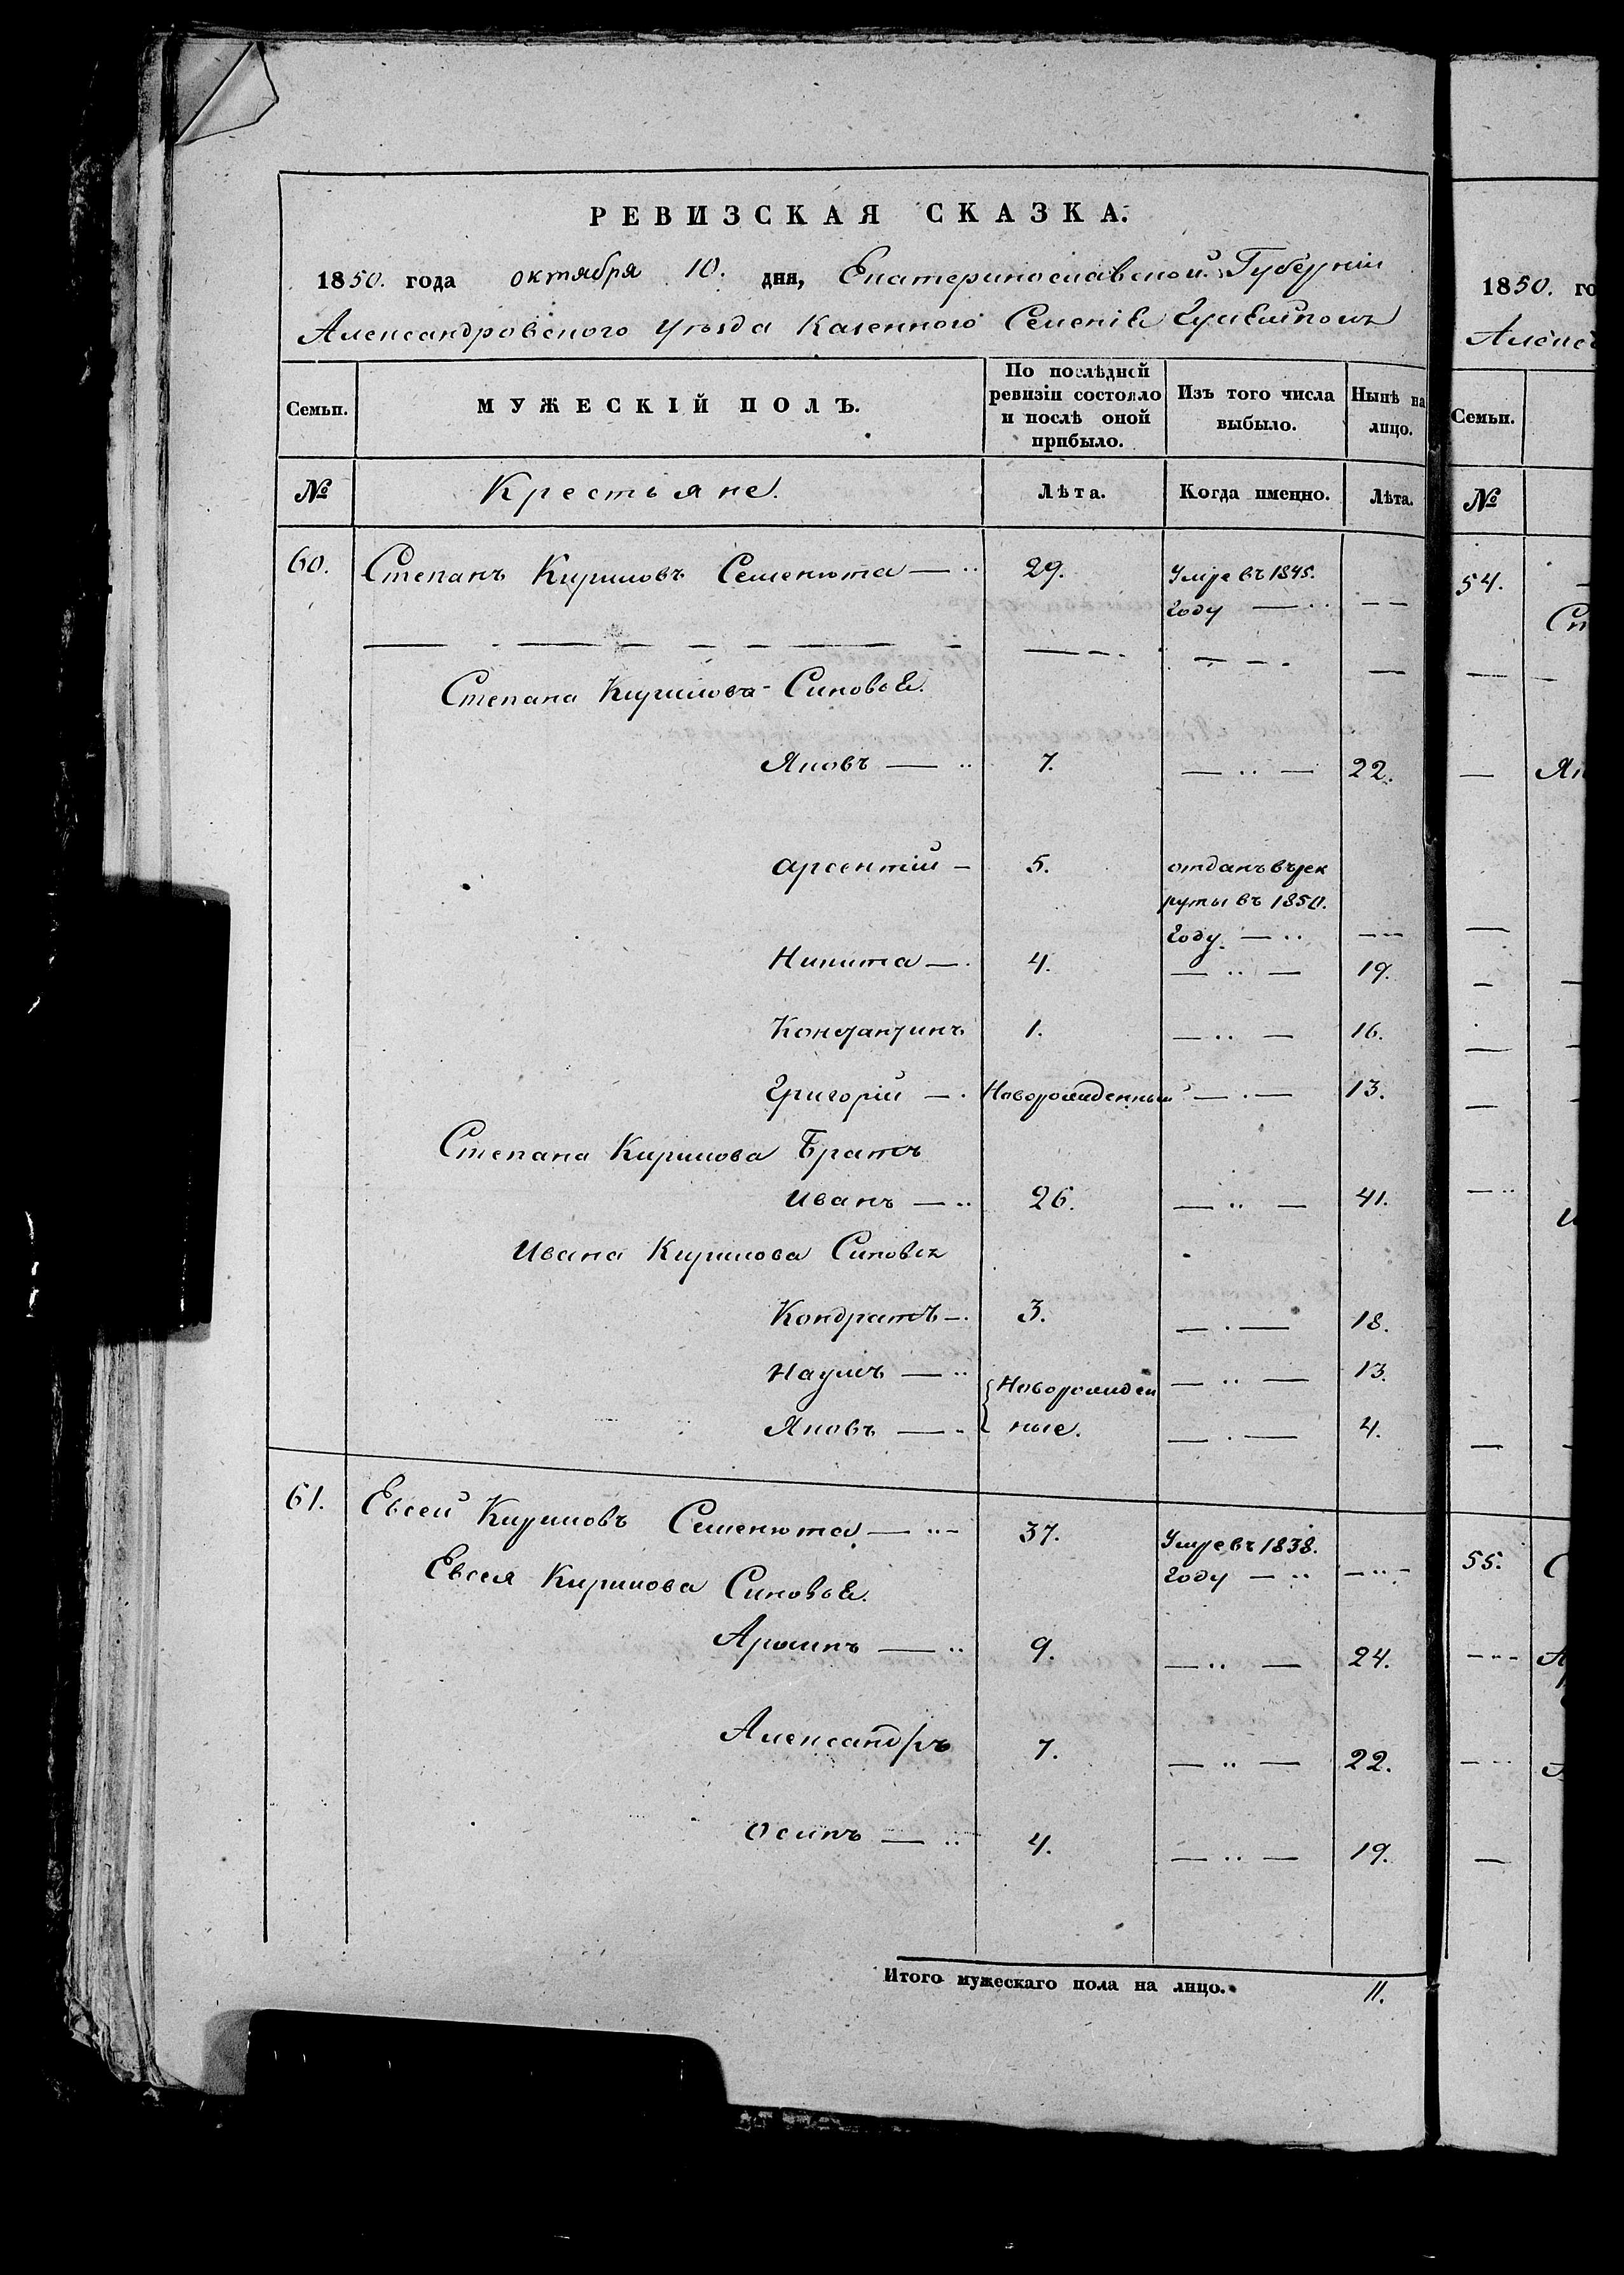 РЕВИЗСКАЯ СКАЗКА.
1850. года октября 10. дня, Екатеринославской Губерніи
Александровского Уезда Казенного Селенія Гуляйполя
Семьи. МУЖЕСКІЙ ПОЛЪ. По послѣдней ревизіи состояло и послѣ оной прибыло. Изъ того числа выбыло. Нынѣ на лицо.
№ Крестьяне. Лѣта. Когда именно. Лѣта.
60. Степанъ Кириловъ Семенюта — 29. Умре въ 1845.
году — — —
Степана Кирилова Синовья
Яковъ — 7. — 22.
Арсентій — 5. отданъ въ рек
руты въ 1850.
году. —
Никита — 4. — 19.
Константинъ 1. — 16.
Григорій — Новорожденный — 13.
Степана Кирилова Братъ
Иванъ — 26. — 41.
Ивана Кирилова Синовья
Кондратъ — 3. — 18.
Наумъ — Новорожден — 13.
Яковъ — ные. — 4.
61. Евсей Кириловъ Семенюта — 37. Умре въ 1838.
году —
Евсея Кирилова Синовья.
9. — 24.
Александръ 7. — 22.
Осипъ — 4. — 19.
Итого мужескаго пола на лицо. 11.
1850. го
Семьи.
№
54.
55.